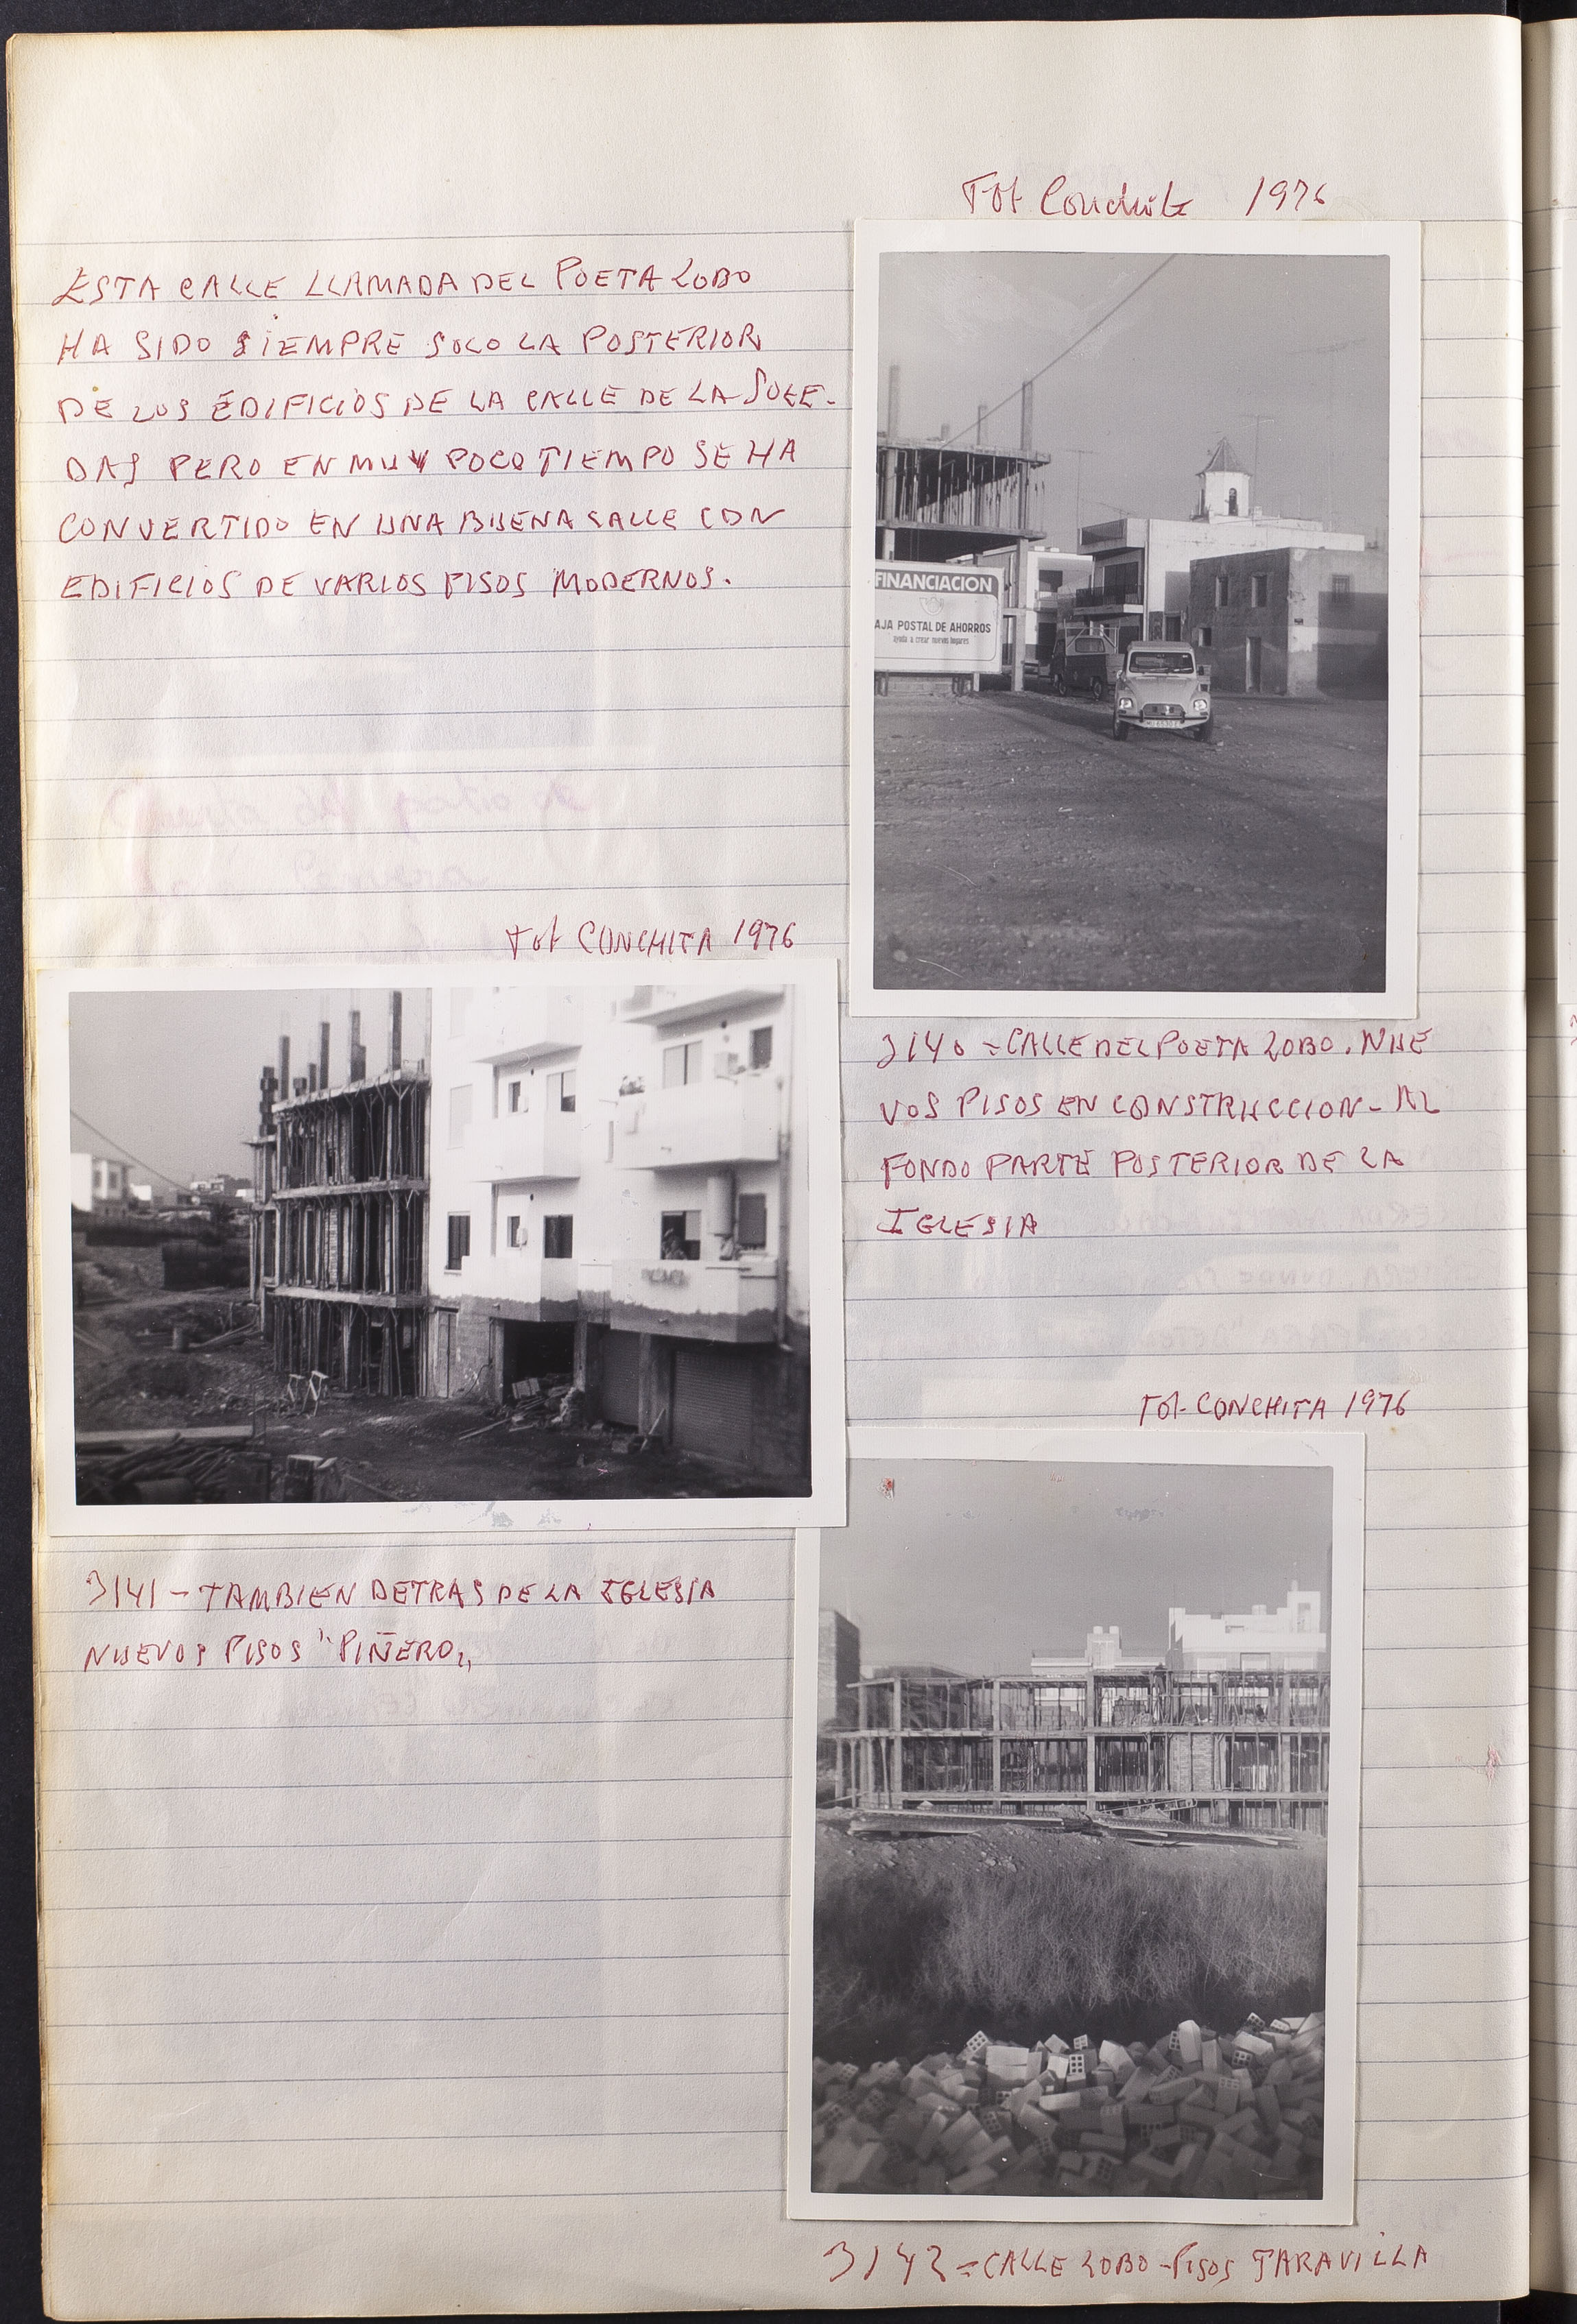 Fot Conchita 1976
ESTA CALLE LLAMADA DEL POETA LOBO
HA SIDO SIEMPRE SOLO LA POSTERIOR
DE LOS EDIFICIOS DE LA CALLE DE LA SOLE-
DAS PERO EN MUY POCO TIEMPO SE HA
CONVERTIDO EN UNA BUENA CALLE CON
EDIFICIOS DE VARIOS PISOS MODERNOS.
FINANCIACION
AJA POSTAL DE AHORROS
ayuda a crear nuevos hogares
Fot CONCHITA 1976
3140 = CALLE DEL POETA LOBO. NUE
VOS PISOS EN CONSTRUCCION - AL
FONDO PARTE POSTERIOR DE LA
IGLESIA
Fot - CONCHITA 1976
3141 - TAMBIEN DETRAS DE LA IGLESIA
NUEVOS PISOS "PIÑERO"
3142 = CALLE LOBO - PISOS TARAVILLA